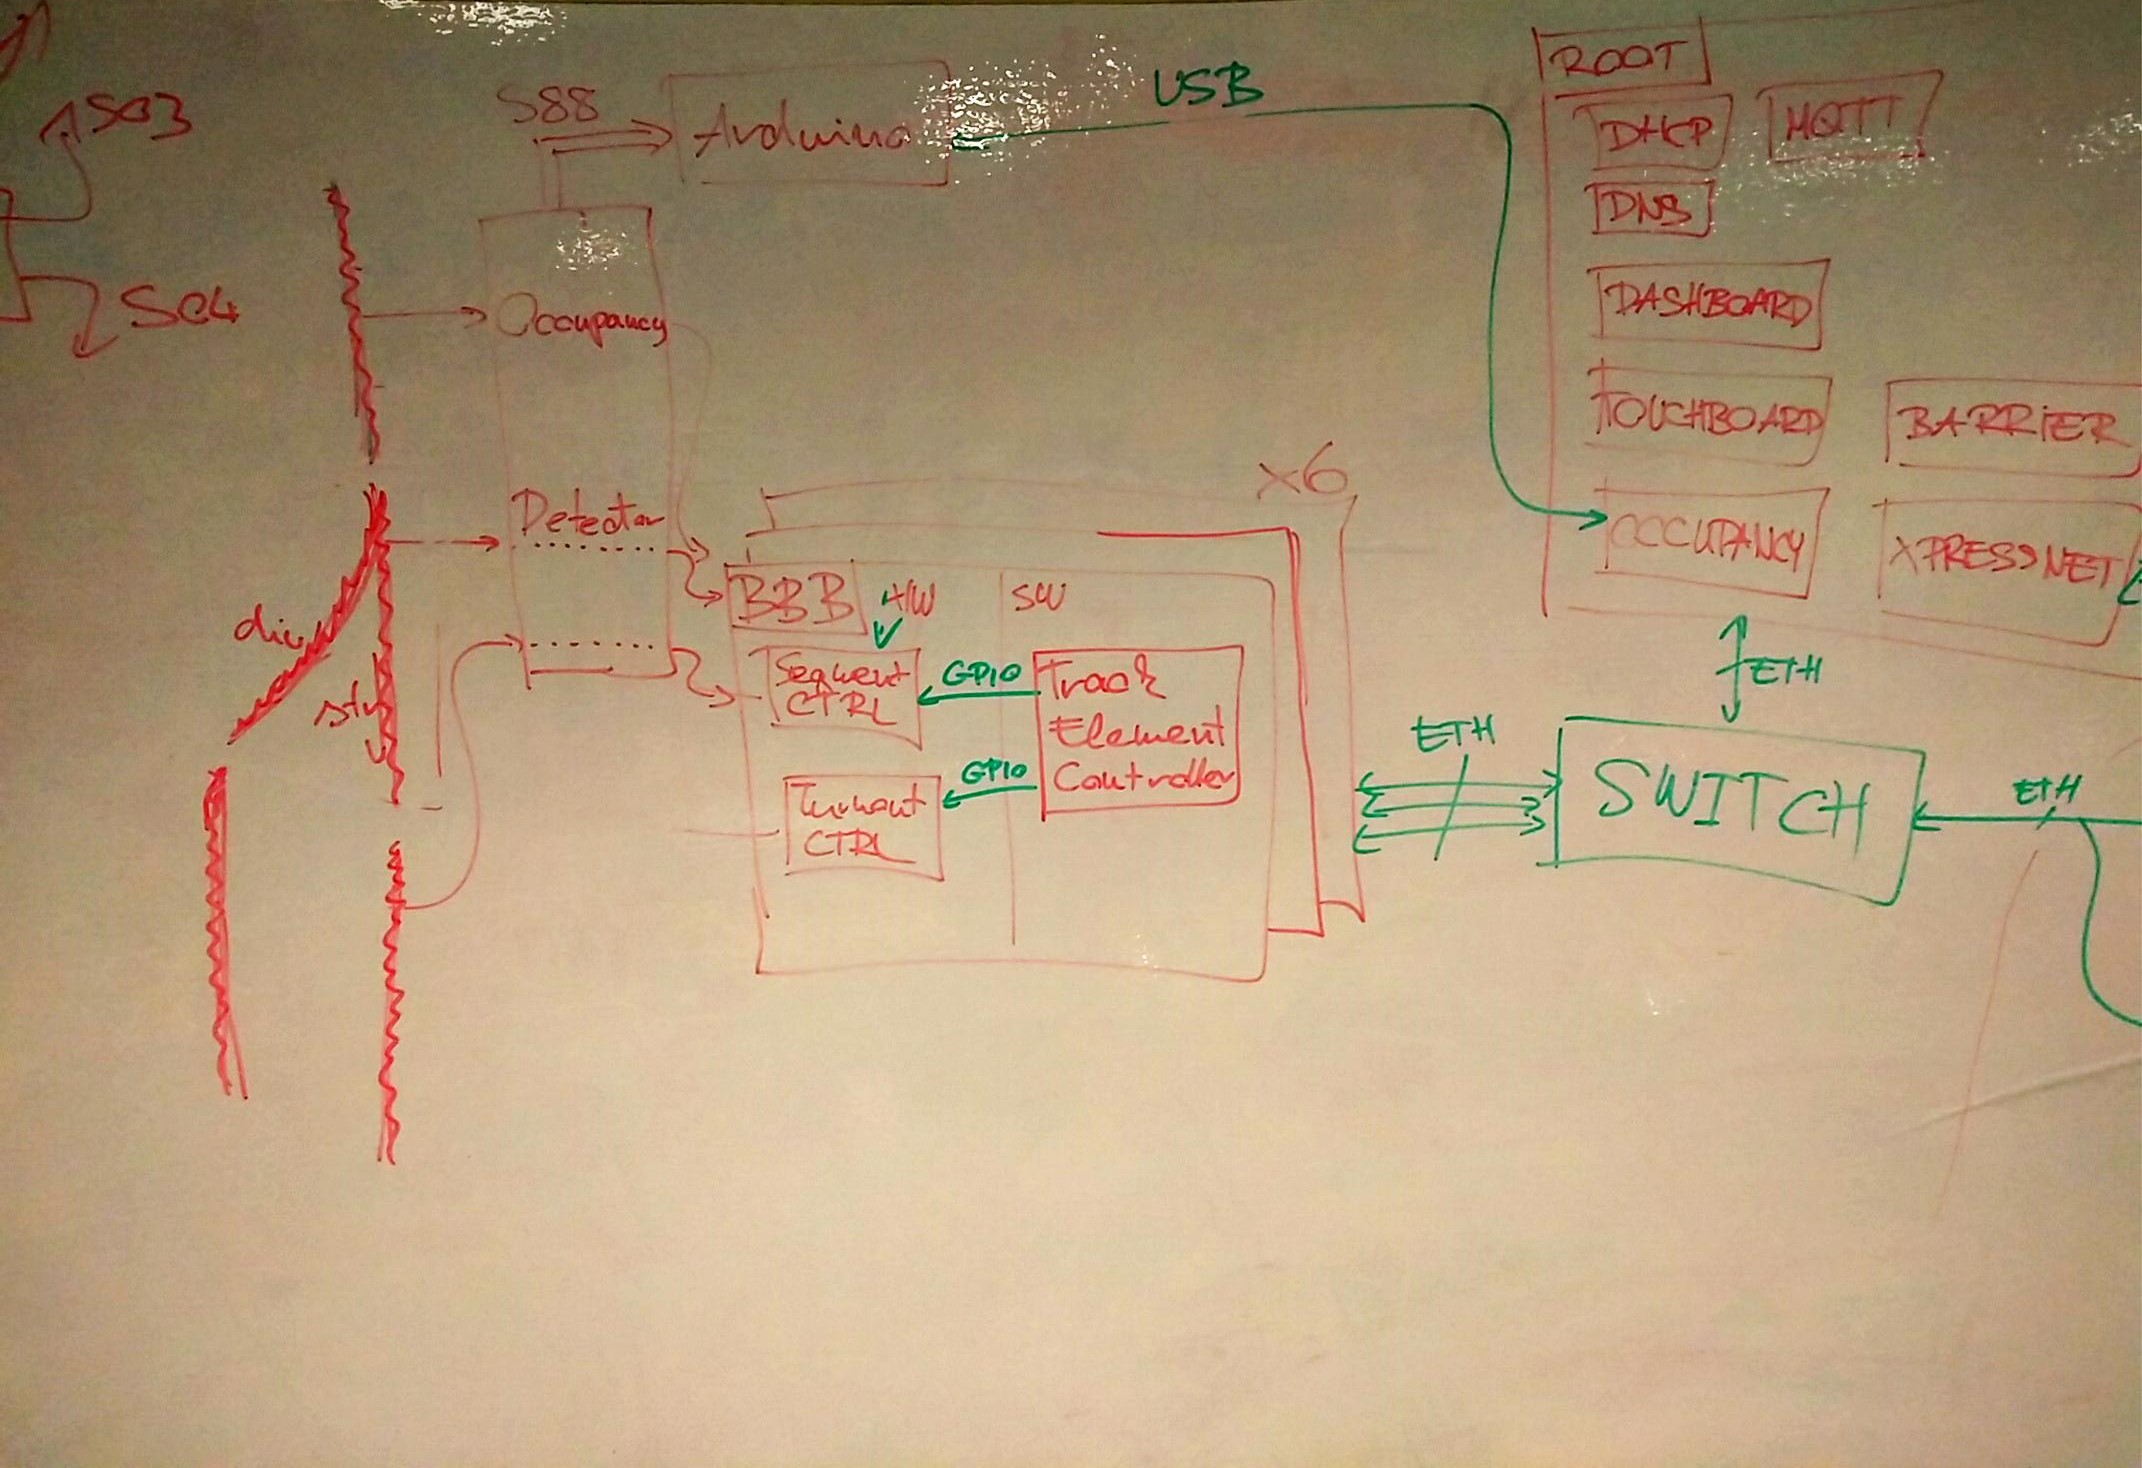 SC3
SC4
S88
Arduino
USB
ROOT
DHCP
MQTT
DNS
DASHBOARD
TOUCHBOARD
BARRIER
OCCUPANCY
XPRESSNET
Occupancy
Detector
div
str
x6
BBB
H/W
SW
Segment
CTRL
GPIO
Track
Element
Controller
GPIO
Turnout
CTRL
ETH
ETH
SWITCH
ETH